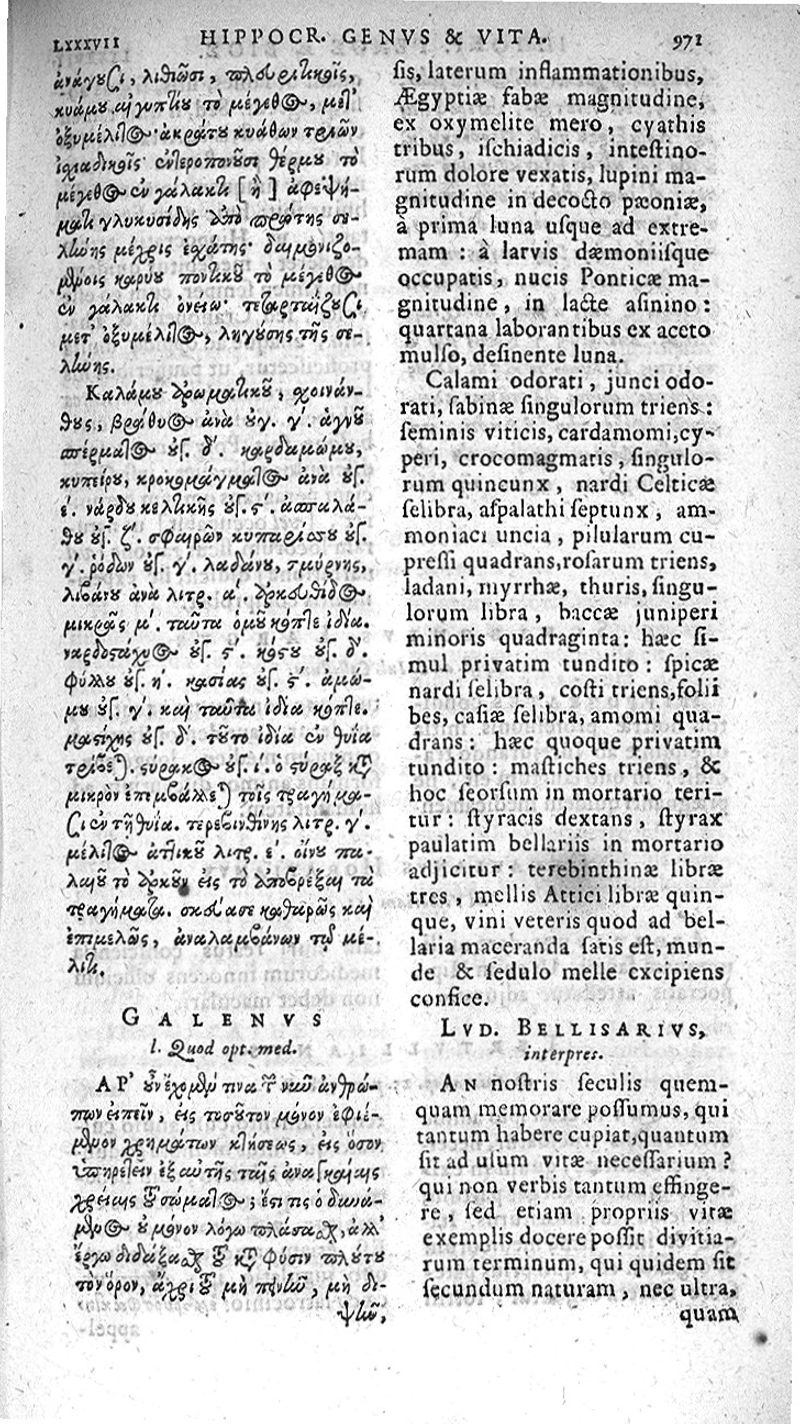 LXXXVII HIPPOCR. GENVS & VITA. 971
ἀνάγουσι, λιθιῶσι, πλευριτικοῖς,
κυάμου αἰγυπτίου τὸ μέγεθος, μετ'
ὀξυμέλιτος ἀκράτου κυάθων τριῶν
ἰσχιαδικοῖς ἐντεροπονοῦσι θέρμου τὸ
μέγεθος ἐν γάλακτι [ἢ] ἀφεψή-
ματι γλυκυσίδης ἀπὸ πρώτης σε-
λήνης μέχρις ἐσχάτης· δαιμονιζο-
μένοις καρύου ποντικοῦ τὸ μέγεθος
ἐν γάλακτι ὀνείῳ· τεταρταΐζουσι
μετ' ὀξυμέλιτος, ληγούσης τῆς σε-
λήνης.
Καλάμου ἀρωματικοῦ, σχοινάν-
θους, βράθυος ἀνὰ ουγ. γ΄. ἁγνοῦ
σπέρματος οὐγ. δ΄. καρδαμώμου,
κυπείρου, κροκομάγματος ἀνὰ οὐγ.
ε΄. νάρδου κελτικῆς οὐγ. ϛ΄. ἀσπαλά-
θου οὐγ. ζ΄. σφαιρῶν κυπαρίσσου οὐγ.
γ΄. ῥόδων οὐγ. γ΄. λαδάνου, σμύρνης,
λιβάνου ἀνὰ λιτρ. α΄. ἀρκευθίδος
μικρᾶς μ΄. ταῦτα ὁμοῦ κόπτε ἰδίᾳ.
ναρδοστάχυος οὐγ. ϛ΄. κόστου οὐγ. δ΄.
φύλλου οὐγ. η΄. κασίας οὐγ. ϛ΄. ἀμώ-
μου οὐγ. γ΄. καὶ ταῦτα ἰδίᾳ κόπτε.
μαστίχης οὐγ. δ΄. τοῦτο ἰδίᾳ ἐν θυίᾳ
τρίβεται. στύρακος οὐγ. ι΄. ὁ στύραξ κατὰ
μικρὸν ἐπεμβάλλεται τοῖς τραγήμα-
σι ἐν τῇ θυίᾳ. τερεβινθίνης λιτρ. γ΄.
μέλιτος ἀττικοῦ λιτρ. ε΄. οἴνου πα-
λαιοῦ τὸ ἀρκοῦν εἰς τὸ ἀποβρέξαι τὰ
τραγήματα. σκεύασε καθαρῶς καὶ
ἐπιμελῶς, ἀναλαμβάνων τῷ μέ-
λιτι.
GALENVS
l. Quod opt. med.
ΑΡ' οὖν ἔχομέν τινα τῶν νῦν ἀνθρώ-
πων εἰπεῖν, εἰς τοσοῦτον μόνον ἐφιέ-
μενον χρημάτων κλήσεως, εἰς ὅσον
ὑπηρετεῖν ἐξ αὐτῆς ταῖς ἀναγκαίαις
χρείαις τοῦ σώματος; ἔστι τις ὁ δυνά-
μενος οὐ μόνον λόγῳ πλάσασθαι, ἀλλ'
ἔργῳ διδάξασθαι τοῦ κατὰ φύσιν πλούτου
τὸν ὅρον, ἄχρι τοῦ μὴ πεινῶν, μὴ δι-
ψῶν,
sis, laterum inflammationibus,
Ægyptiæ fabæ magnitudine,
ex oxymelite mero, cyathis
tribus, ischiadicis, intestino-
rum dolore vexatis, lupini ma-
gnitudine in decocto pæoniæ,
à prima luna usque ad extre-
mam : à larvis dæmoniisque
occupatis, nucis Ponticæ ma-
gnitudine, in lacte asinino :
quartana laborantibus ex aceto
mulso, desinente luna.
Calami odorati, junci odo-
rati, sabinæ singulorum triens :
seminis viticis, cardamomi, cy-
peri, crocomagmatis, singulo-
rum quincunx, nardi Celticæ
selibra, aspalathi septunx, am-
moniaci uncia, pilularum cu-
pressi quadrans, rosarum triens,
ladani, myrrhæ, thuris, singu-
lorum libra, baccæ juniperi
minoris quadraginta: hæc si-
mul privatim tundito : spicæ
nardi selibra, costi triens, folii
bes, casiæ selibra, amomi qua-
drans : hæc quoque privatim
tundito : mastiches triens, &
hoc seorsum in mortario teri-
tur : styracis dextans, styrax
paulatim bellariis in mortario
adjicitur : terebinthinæ libræ
tres, mellis Attici libræ quin-
que, vini veteris quod ad bel-
laria maceranda satis est, mun-
de & sedulo melle excipiens
confice.
LVD. BELLISARIVS,
interpres.
AN nostris seculis quem-
quam memorare possumus, qui
tantum habere cupiat, quantum
sit ad usum vitæ necessarium ?
qui non verbis tantum effinge-
re, sed etiam propriis vitæ
exemplis docere possit divitia-
rum terminum, qui quidem sit
secundum naturam, nec ultra,
quam